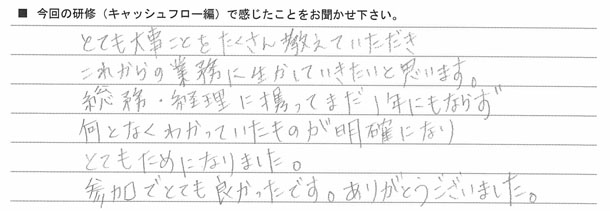 ■ 今回の研修（キャッシュフロー編）で感じたことをお聞かせ下さい。
とても大事ことをたくさん教えていただき
これからの業務に生かしていきたいと思います。
総務・経理に携ってまだ1年にもならず
何となくわかっていたものが明確になり
とてもためになりました。
参加でとても良かったです。ありがとうございました。